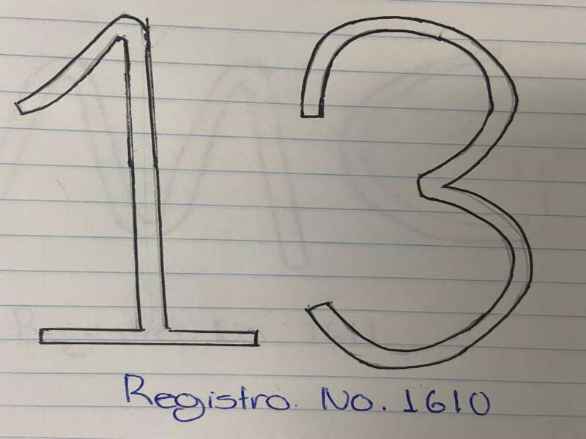 13
Registro. No. 1610